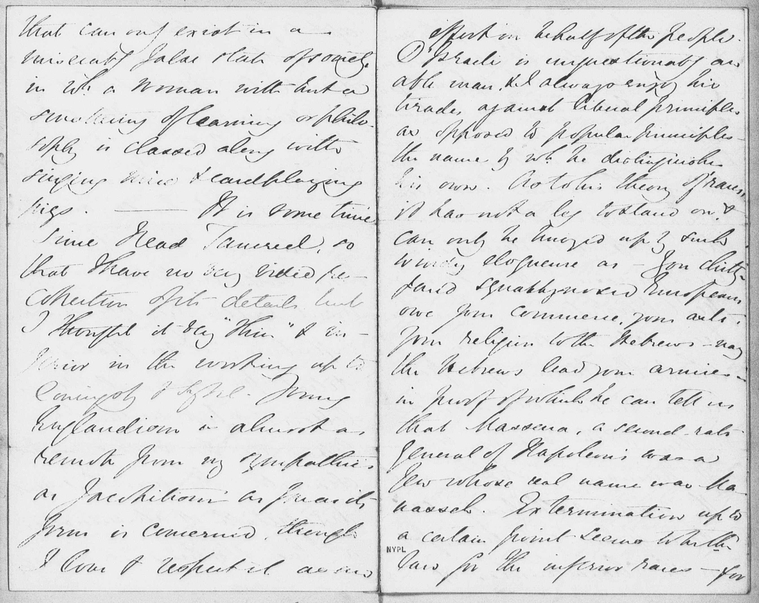 that can only exist in a
miserably false state of society
in wh. a woman with but a
smattering of learning or philo-
sophy is classed along with
singing mice & card playing
pigs. — It is some time
since I read Tancred, so
that I have no very vivid re-
collection of its details but
I thought it very "thin" & in-
ferior in the working up to
Coningsby & Sybil. Young
Englandism is almost as
remote from my sympathies
as Jacobitism as far as its
form is concerned, though
I love & respect it as an
effort on behalf of the people.
D'Israeli is unquestionably an
able man, & I always enjoy his
tirades against liberal principles
as opposed to popular principles—
the name by wh. he distinguishes
his own. As to his theory of races
it has not a leg to stand on, &
can only be buoyed up by such
windy eloquence as — You chitty
faced squabby-nosed Europeans
owe your commerce, your arts,
your religion to the Hebrews — nay
the Hebrews lead your armies—
in proof of which he can tell us
that Massena, a second-rate
general of Napoleon's was a
Jew whose real name was Ma-
nasseh. Extermination up to
a certain point seems to be the
law for the inferior races — for
NYPL